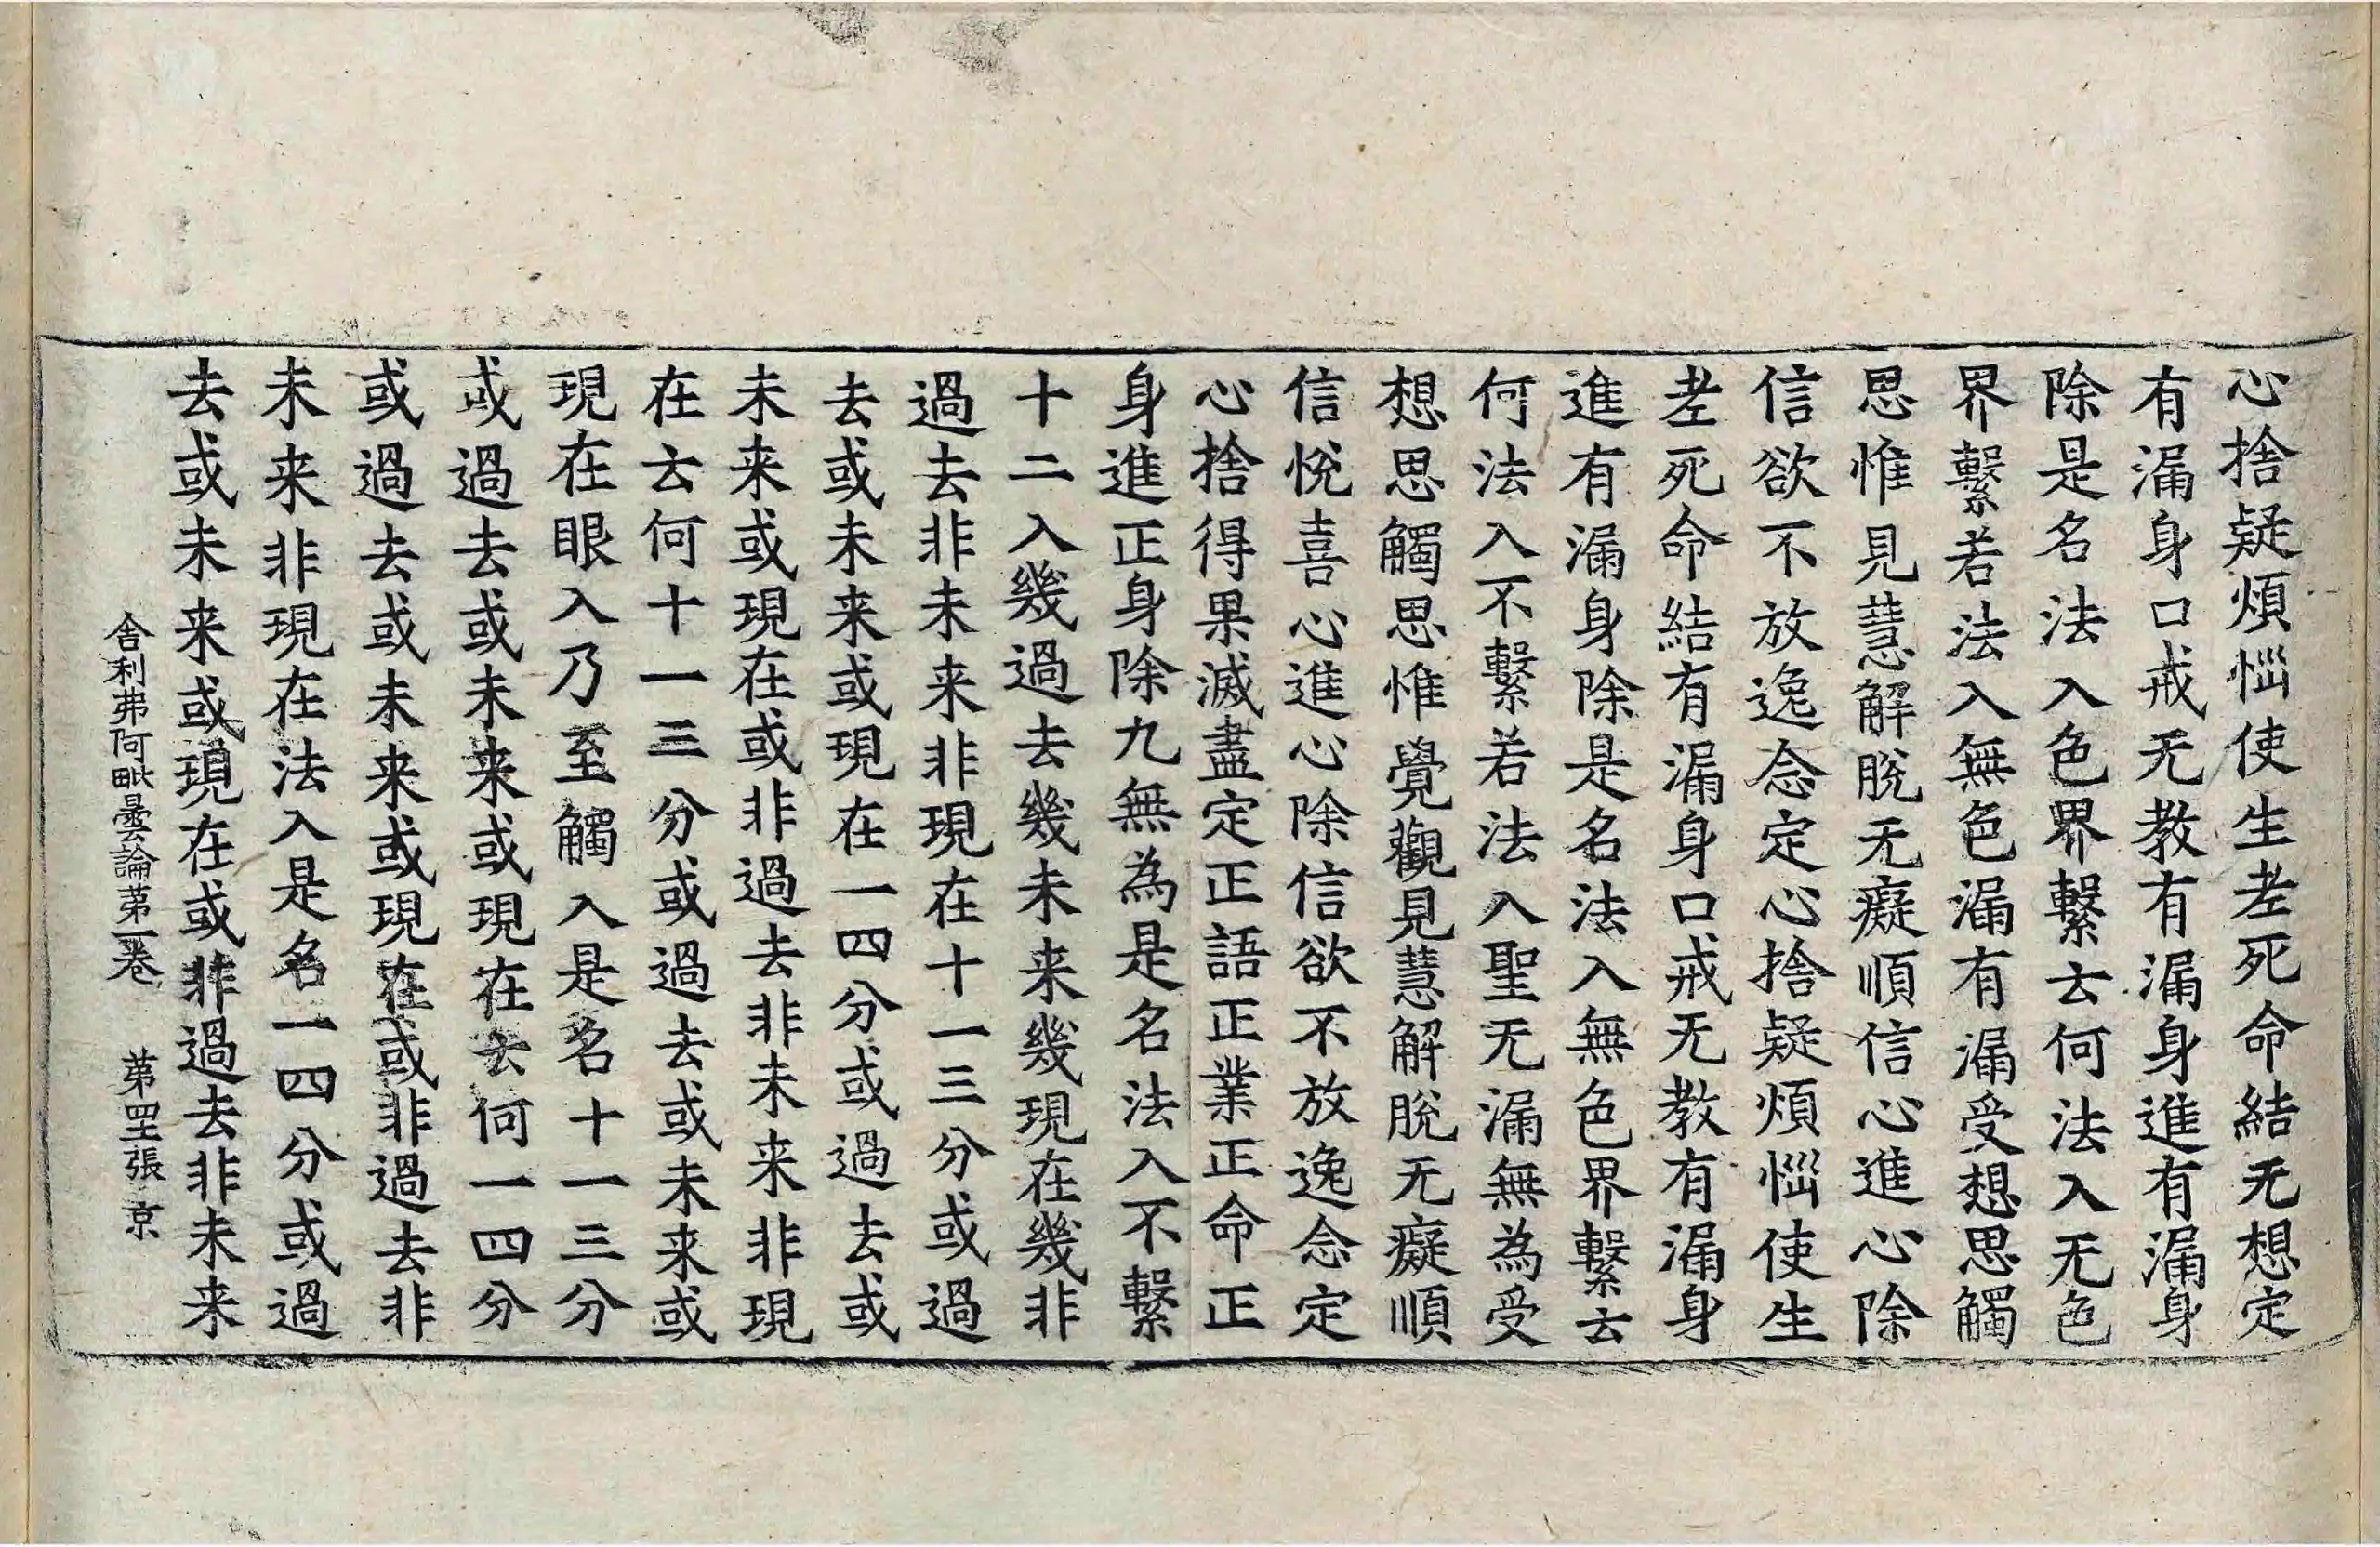 心捨疑煩惱使生老死命結无想定
有漏身口戒无教有漏身進有漏身
除是名法入色界繫云何法入无色
界繫若法入無色漏有漏受想思觸
思惟見慧解脫无癡順信心進心除
信欲不放逸念定心捨疑煩惱使生
老死命結有漏身口戒无教有漏身
進有漏身除是名法入無色界繫云
何法入不繫若法入聖无漏無為受
想思觸思惟覺觀見慧解脫无癡順
信悅喜心進心除信欲不放逸念定
心捨得果滅盡定正語正業正命正
身進正身除九無為是名法入不繫
十二入幾過去幾未来幾現在幾非
過去非未来非現在十一三分或過
去或未来或現在一四分或過去或
未来或現在或非過去非未来非現
在云何十一三分或過去或未来或
現在眼入乃至觸入是名十一三分
或過去或未来或現在云何一四分
或過去或未来或現在或非過去非
未来非現在法入是名一四分或過
去或未来或現在或非過去非未来
舍利弗阿毗曇論苐一卷 苐罜張 京